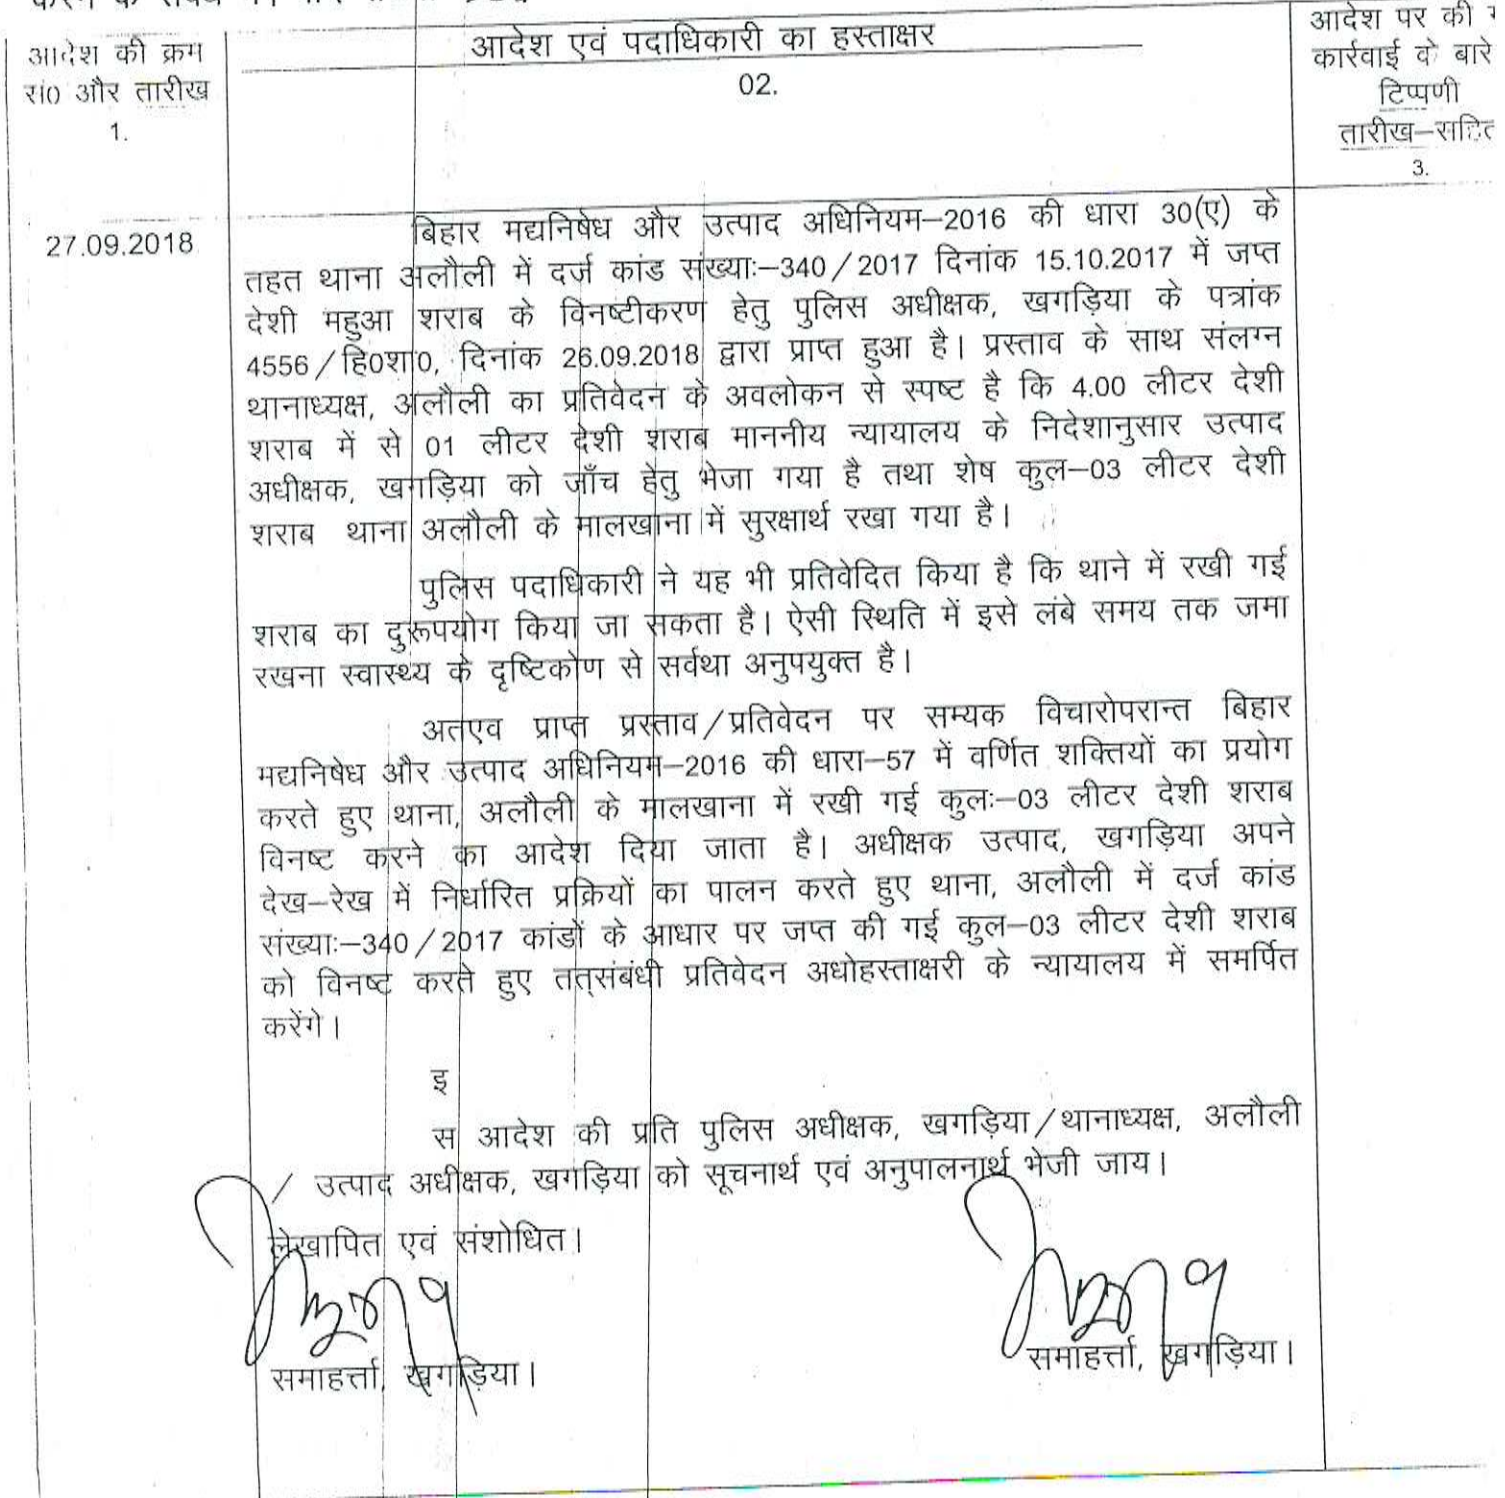 आदेश की क्रम
सं0 और तारीख
1.
आदेश एवं पदाधिकारी का हस्ताक्षर
02.
आदेश पर की
कार्रवाई के बारे
टिप्पणी
तारीख–सहित
3.
27.09.2018
बिहार मद्यनिषेध और उत्पाद अधिनियम–2016 की धारा 30(ए) के
तहत थाना अलौली में दर्ज कांड संख्याः–340/2017 दिनांक 15.10.2017 में जप्त
देशी महुआ शराब के विनष्टीकरण हेतु पुलिस अधीक्षक, खगड़िया के पत्रांक
4556/हि0शा0, दिनांक 26.09.2018 द्वारा प्राप्त हुआ है। प्रस्ताव के साथ संलग्न
थानाध्यक्ष, अलौली का प्रतिवेदन के अवलोकन से स्पष्ट है कि 4.00 लीटर देशी
शराब में से 01 लीटर देशी शराब माननीय न्यायालय के निदेशानुसार उत्पाद
अधीक्षक, खगड़िया को जाँच हेतु भेजा गया है तथा शेष कुल–03 लीटर देशी
शराब थाना अलौली के मालखाना में सुरक्षार्थ रखा गया है।
पुलिस पदाधिकारी ने यह भी प्रतिवेदित किया है कि थाने में रखी गई
शराब का दुरूपयोग किया जा सकता है। ऐसी स्थिति में इसे लंबे समय तक जमा
रखना स्वास्थ्य के दृष्टिकोण से सर्वथा अनुपयुक्त है।
अतएव प्राप्त प्रस्ताव/प्रतिवेदन पर सम्यक विचारोपरान्त बिहार
मद्यनिषेध और उत्पाद अधिनियम–2016 की धारा–57 में वर्णित शक्तियों का प्रयोग
करते हुए थाना, अलौली के मालखाना में रखी गई कुलः–03 लीटर देशी शराब
विनष्ट करने का आदेश दिया जाता है। अधीक्षक उत्पाद, खगड़िया अपने
देख–रेख में निर्धारित प्रक्रियों का पालन करते हुए थाना, अलौली में दर्ज कांड
संख्याः–340/2017 कांडों के आधार पर जप्त की गई कुल–03 लीटर देशी शराब
को विनष्ट करते हुए तत्संबंधी प्रतिवेदन अधोहस्ताक्षरी के न्यायालय में समर्पित
करेंगे।
इ
स आदेश की प्रति पुलिस अधीक्षक, खगड़िया/थानाध्यक्ष, अलौली
/ उत्पाद अधीक्षक, खगड़िया को सूचनार्थ एवं अनुपालनार्थ भेजी जाय।
लेखापित एवं संशोधित।
समाहर्त्ता, खगड़िया।
समाहर्त्ता, खगड़िया।